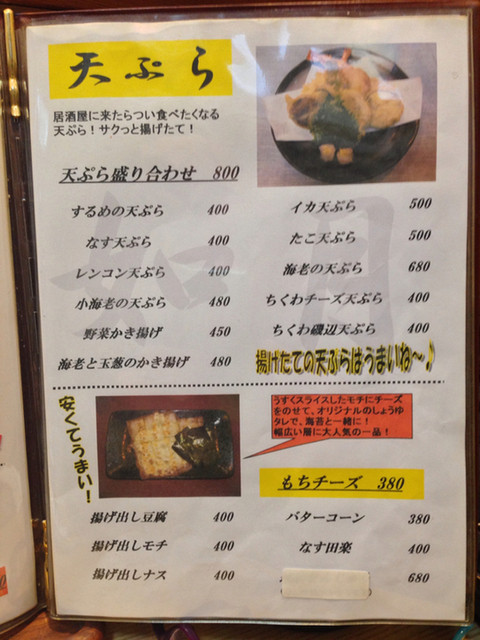 天ぷら
居酒屋に来たらつい食べたくなる
天ぷら！サクっと揚げたて！
天ぷら盛り合わせ 800
するめの天ぷら 400
なす天ぷら 400
レンコン天ぷら 400
小海老の天ぷら 480
野菜かき揚げ 450
海老と玉葱のかき揚げ 480
イカ天ぷら 500
たこ天ぷら 500
海老の天ぷら 680
ちくわチーズ天ぷら 400
ちくわ磯辺天ぷら 400
揚げたての天ぷらはうまいね〜♪
安くてうまい！
うすくスライスしたモチにチーズ
をのせて、オリジナルのしょうゆ
タレで、海苔と一緒に！
幅広い層に大人気の一品！
もちチーズ 380
揚げ出し豆腐 400
揚げ出しモチ 400
揚げ出しナス 400
バターコーン 380
なす田楽 400
680